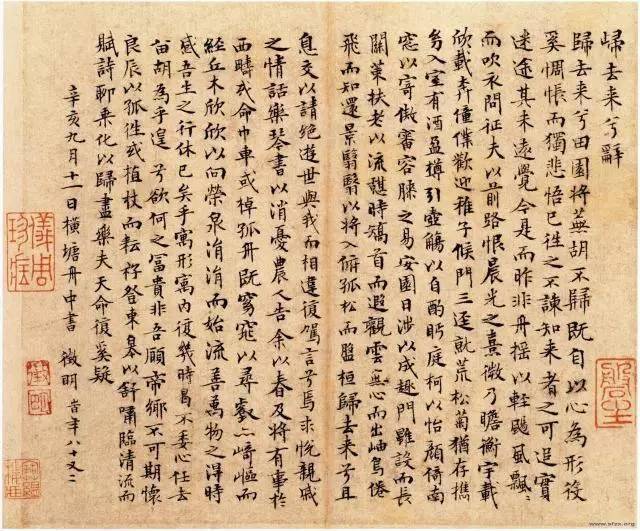 歸去来兮辭
歸去来兮田園將蕪胡不歸既自以心為形役
奚惆悵而獨悲悟已往之不諫知来者之可追實
迷途其未遠覺今是而昨非舟搖以輕颺風飄〻
而吹衣問征夫以前路恨晨光之熹微乃瞻衡宇載
欣載奔僮僕歡迎稚子候門三逕就荒松菊猶存攜
幼入室有酒盈樽引壺觴以自酌眄庭柯以怡顏倚南
窓以寄傲審容膝之易安園日涉以成趣門雖設而長
關策扶老以流憩時矯首而遐觀雲無心而出岫鳥倦
飛而知還景翳翳以將入撫孤松而盤桓歸去来兮且
息交以請絶遊世與我而相違復駕言兮焉求悅親戚
之情話樂琴書以消憂農人告余以春及將有事於
西疇或命巾車或棹孤舟既窈窕以尋壑亦崎嶇而
經丘木欣欣以向榮泉涓涓而始流善萬物之得時
感吾生之行休已矣乎寓形寓内復幾時曷不委心任去
留胡為乎遑〻兮欲何之富貴非吾願帝鄉不可期懷
良辰以孤往或植杖而耘耔登東皋以舒嘯臨清流而
賦詩聊乘化以歸盡樂夫天命復奚疑
辛亥九月十一日橫塘舟中書 徵明 時年八十又二